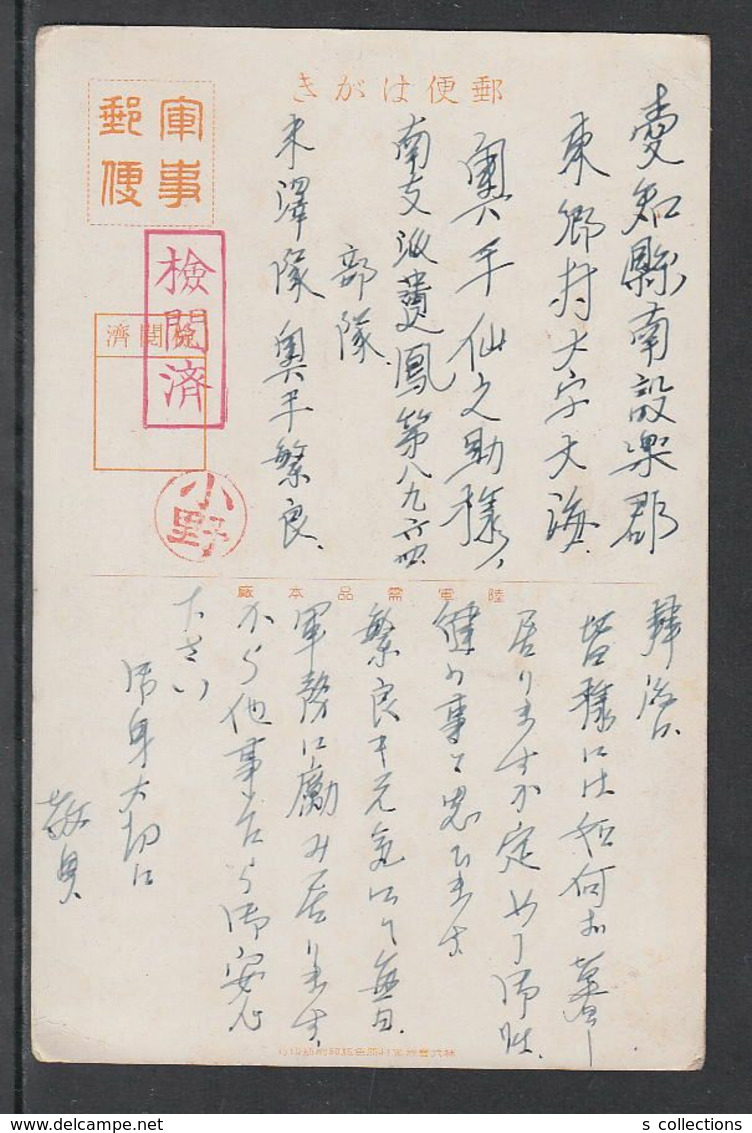 郵便はがき
軍事
郵便
檢閲済
檢閲濟
小野
愛知縣南設楽郡
東郷村大字大海
奥平仙之助様
南支派遣鳳第八九六四
部隊
米澤隊奥平繁良
陸軍需品本廠
拝啓
皆様には如何お暮し
居りますか定めし御壮
健の事と思ひます
繁良も元気にて毎日
軍務に励み居ります
から他事乍ら御安心
下さい
御身大切に
敬具
s collections